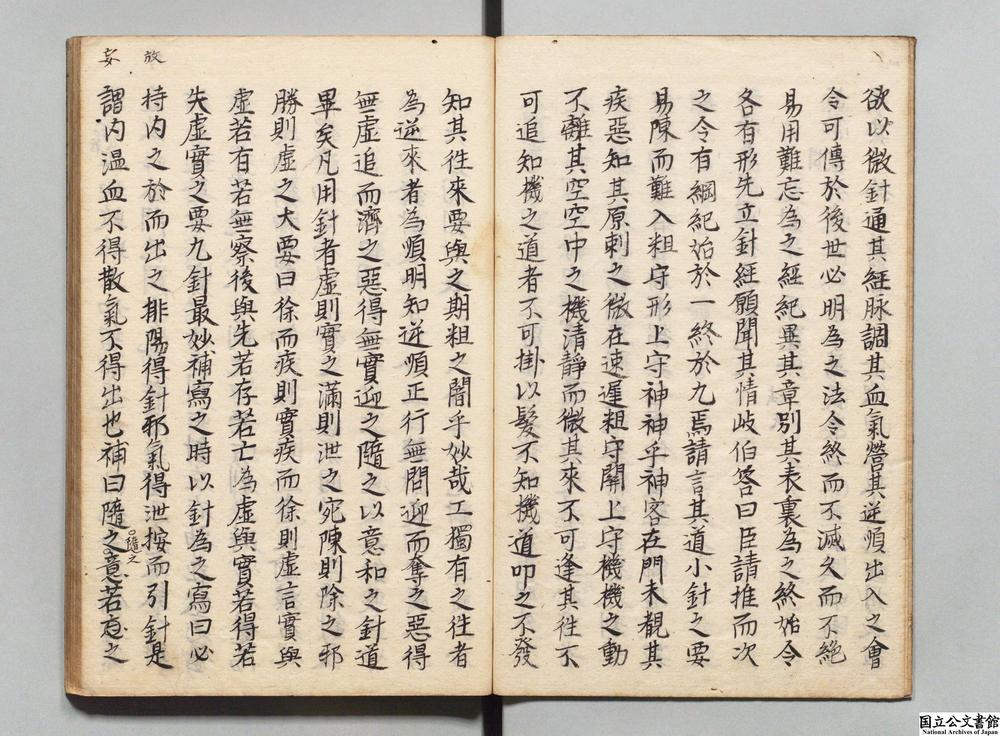 欲以微針通其經脉調其血氣營其逆順出入之會
令可傳於後世必明為之法令終而不滅久而不絶
易用難忘為之經紀異其章別其表裏為之終始令
各有形先立針經願聞其情岐伯答曰臣請推而次
之令有綱紀治於一終於九焉請言其道小針之要
易陳而難入粗守形上守神神乎神客在門未覩其
疾惡知其原刺之微在速遲粗守關上守機機之動
不離其空空中之機清靜而微其來不可逢其徃不
可追知機之道者不可掛以髮不知機道叩之不發
知其徃來要與之期粗之闇乎妙哉工獨有之徃者
為逆來者為順明知逆順正行無問迎而奪之惡得
無虛追而濟之惡得無實迎之隨之以意和之針道
畢矣凡用針者虛則實之滿則泄之宛陳則除之邪
勝則虛之大要曰徐而疾則實疾而徐則虛言實與
虛若有若無察後與先若存若亡為虛與實若得若
失虛實之要九針最妙補寫之時以針為之寫曰必
持内之於而出之排陽得針邪氣得泄按而引針是
謂内温血不得散氣不得出也補曰隨之意若忘之
隨之
放
妄
国立公文書館
National Archives of Japan